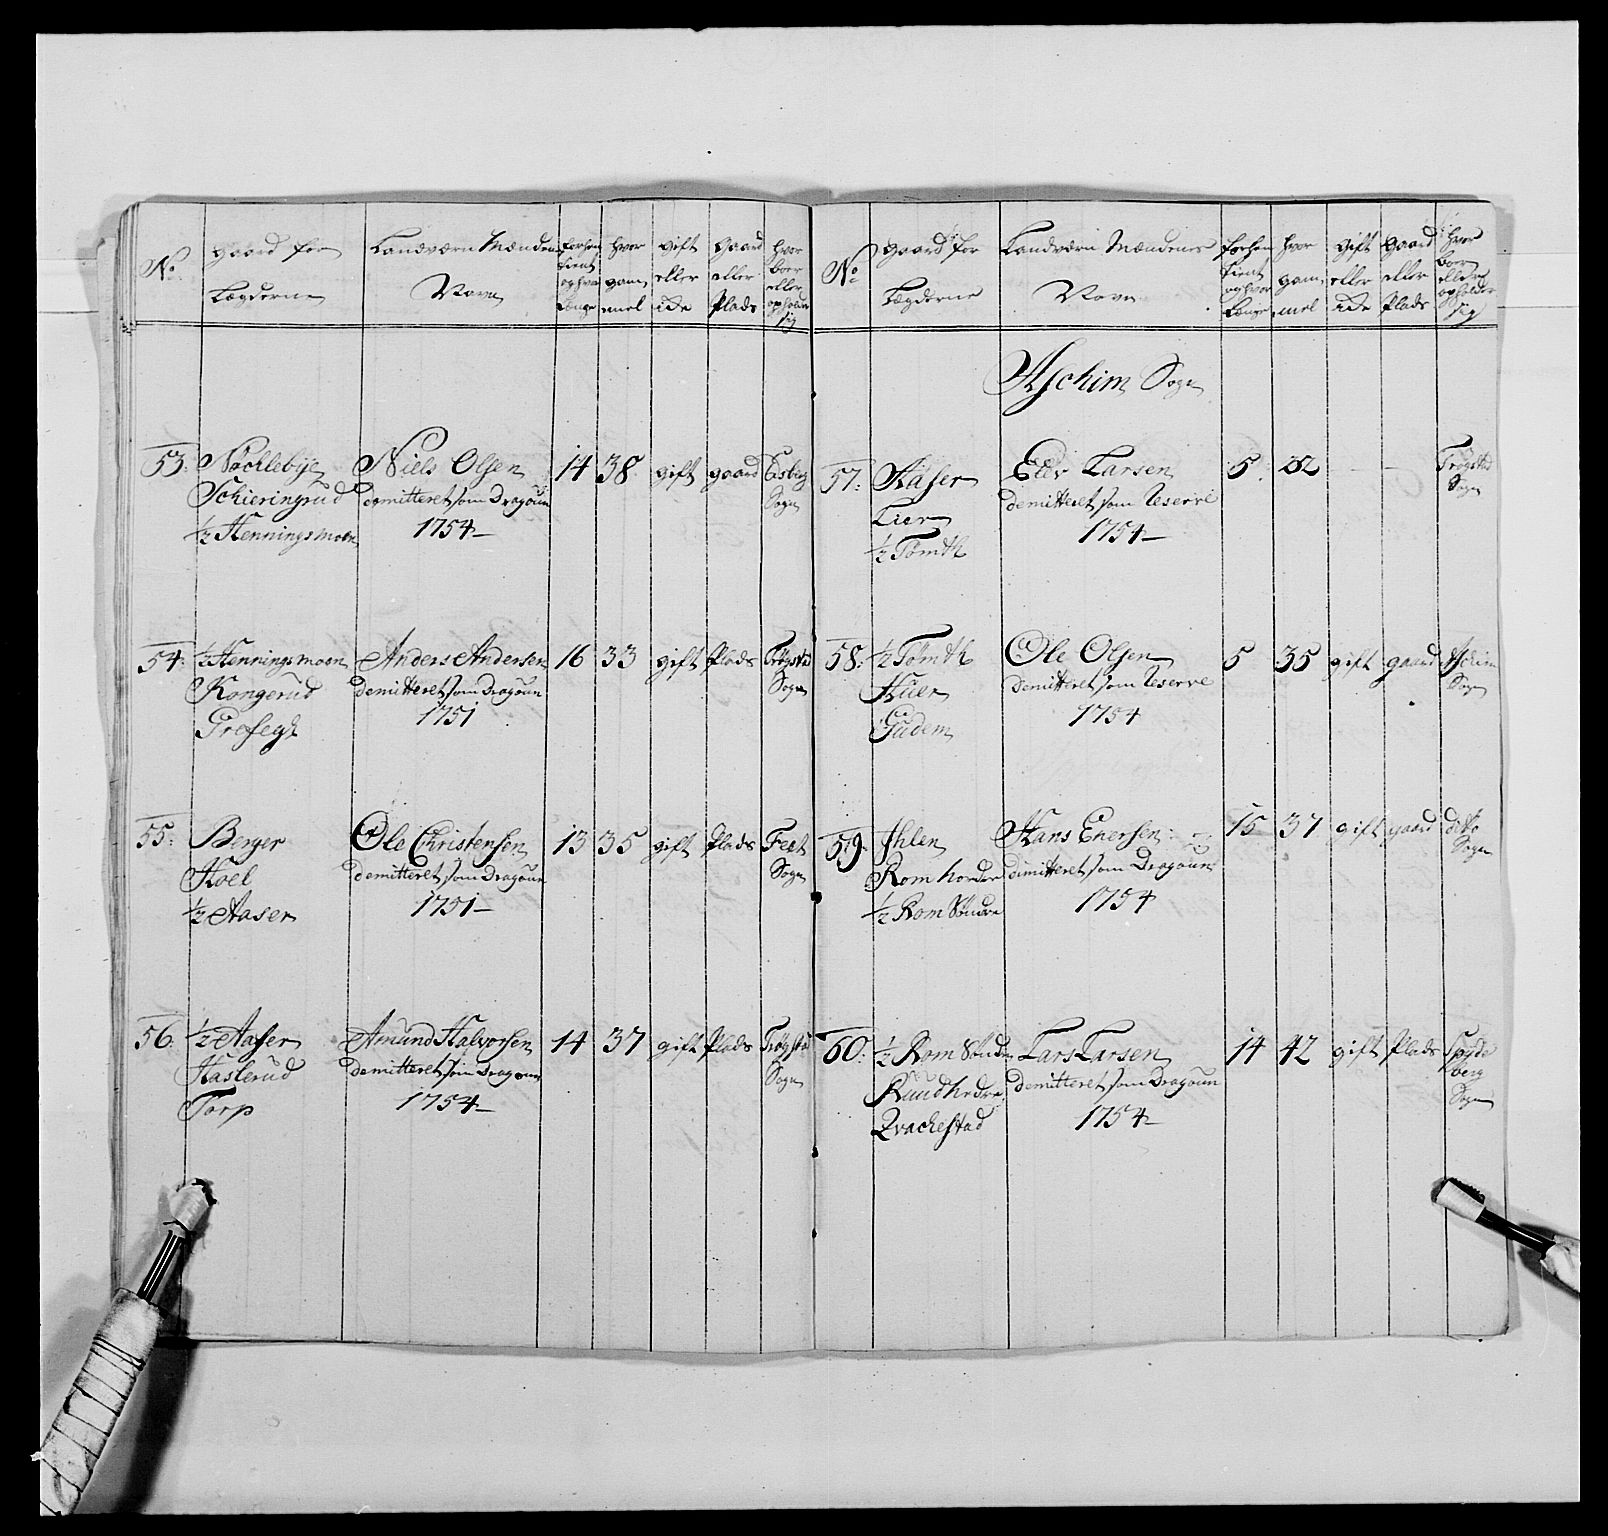 No. Gaard for Lægderne Landværn Mændens Navn forhen tient og hvor Længe hvor gam mel gift eller ide Gaard eller Plads hvor boer eller opholder sig
53: Nøchlebÿe Niels Olsen 14 38 gift gaard Eidsberg
Schieringrud demitteret som Dragoun Sogn
½ Henningsmoen 1754
54: ½ Henningsmoen Anders Andersen 16 33 gift Plads Trøgstad
Kongerud demitteret som Dragoun Sogn
Grefegt 1751
55: Berger Ole Christensen 13 35 gift Plads Feet
Hoel demitteret som Dragoun Sogn
½ Aaser 1751
56: ½ Aaser Amund Halvorsen 14 37 gift Plads Trøgstad
Haslerud demitteret som Dragoun Sogn
Torp 1754
No. Gaard for Lægderne Landværn Mændenes Navn forhen tient og hvor Længe hvor gam mel gift eller ide Gaard eller Plads hvor boer eller opholder sig
Aschim Sogn
57: Haser Elev Larsen 5 32 — — Trøgstad
Lier demitteret som Reserve Sogn
½ Tømth 1754
58: ½ Tømth Ole Olsen 5 35 gift gaard Aschim
Huer demitteret som Reserve Sogn
Gudem 1754
59: Ihlen Hans Enersen 15 37 gift gaard dito
Rom Nordre dimitteret som Dragoun Sogn
½ Rom Søndre 1754
60: ½ Rom Søndre Lars Larsen 14 42 gift Plads Spyde
Ruud Nedre demitteret som Dragoun berg
Qvachestad 1754 Sogn